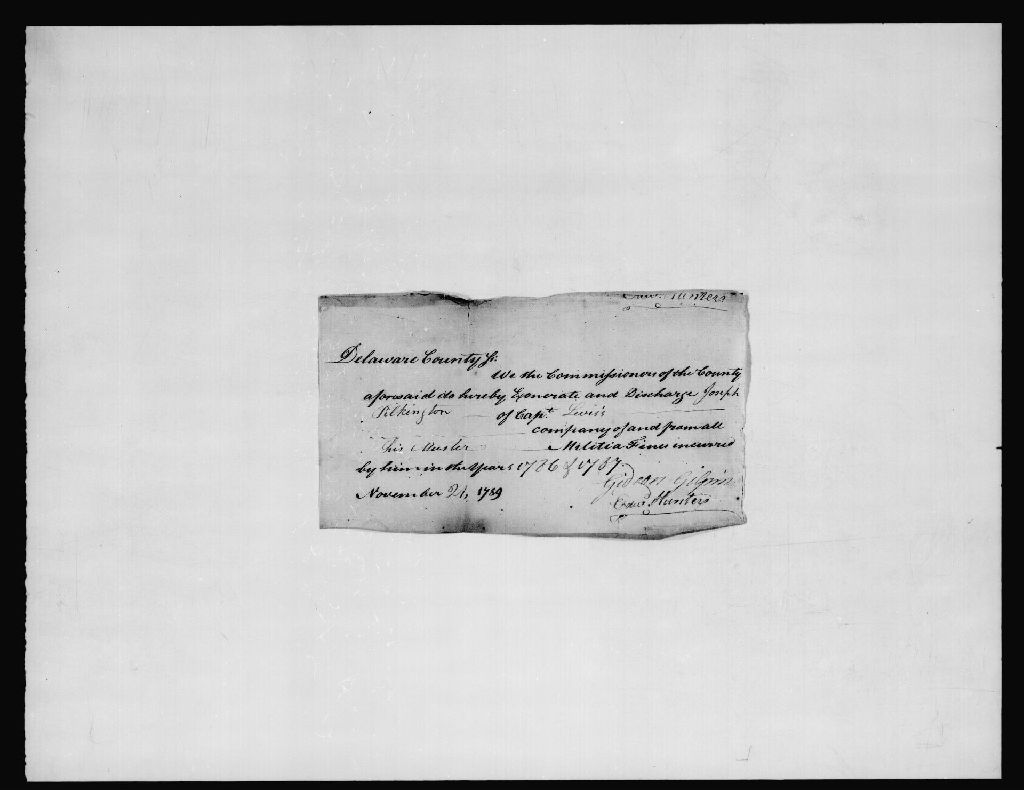 Edwd. Hunters
Delaware County Ss.
We the Commissioners of the County
aforesaid do hereby Exonerate and Discharge Joseph
Pilkington of Capt. Lewis
company of and from all
his Muster Militia Fines incurred
by him in the Years 1786 & 1787.
November 24, 1789
Gideon Gilpin
Edwd. Hunters